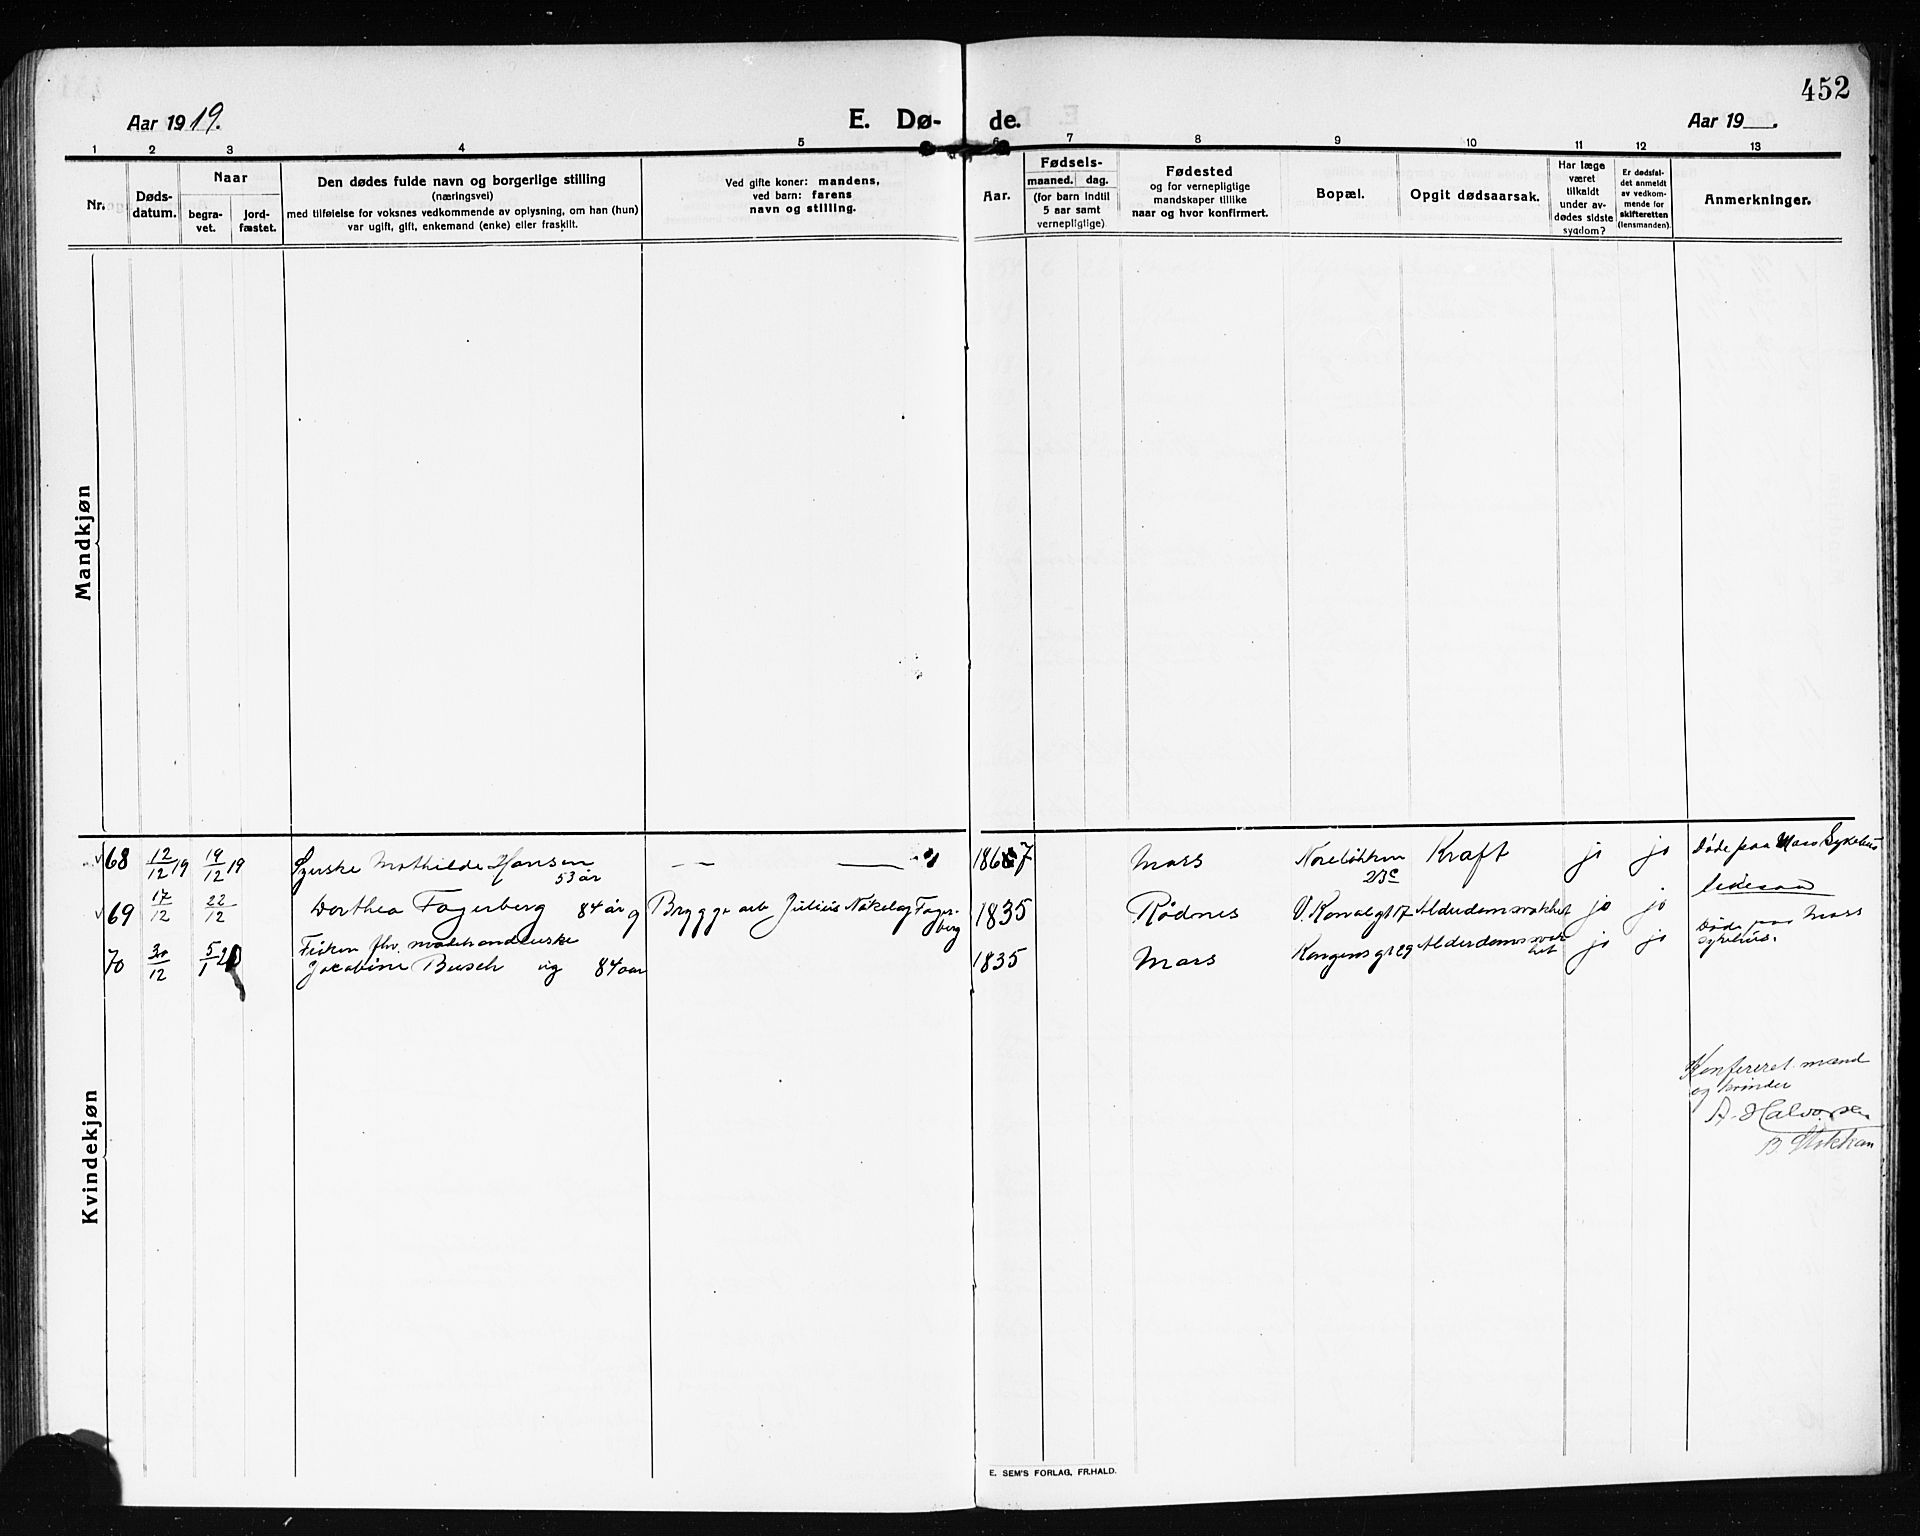 452
Aar 1919.
E. Dø- de.
Aar 19 .
1 2 3 4 5 6 7 8 9 10 11 12 13
Nr.
Døds-
datum.
Naar
begra-
vet.
jord-
fæstet.
Den dødes fulde navn og borgerlige stilling
(næringsvei)
med tilføielse for voksnes vedkommende av oplysning, om han (hun)
var ugift, gift, enkemand (enke) eller fraskilt.
Ved gifte koner: mandens,
ved barn: farens
navn og stilling.
Aar.
Fødsels-
maaned. dag.
(for barn indtil
5 aar samt
vernepligtige)
Fødested
og for vernepligtige
mandskaper tillike
naar og hvor konfirmert.
Bopæl.
Opgit dødsaarsak.
Har læge
været
tilkaldt
under av-
dødes sidste
sygdom?
Er dødsfal-
det anmeldt
av vedkom-
mende for
skifteretten
(lensmanden).
Anmerkninger.
Mandkjøn
Kvindekjøn
68 12/12 19 19/12 19 Mathilde Hansen — — 1867 Moss Kraft jo jo Døde paa Moss Sykehus
53 år 23c
69 17/12 22/12 Dorthea Fagerberg 84 år g Brygge arb Julius Fager-
berg 1835 Rødnes V. Kanalgt 17 Alderdomssvakhet jo jo
Frøken fhv. modehandlerske
70 30/12 5/1 20 Jacobine Busch ug 84 aar 1835 Moss Kongensgt 29 Alderdomssvak-
het jo jo
Døde paa Moss
sykehus.
Konfereret mænd
og kvinder
A. Halvorsen
E. SEM'S FORLAG, FR.HALD.